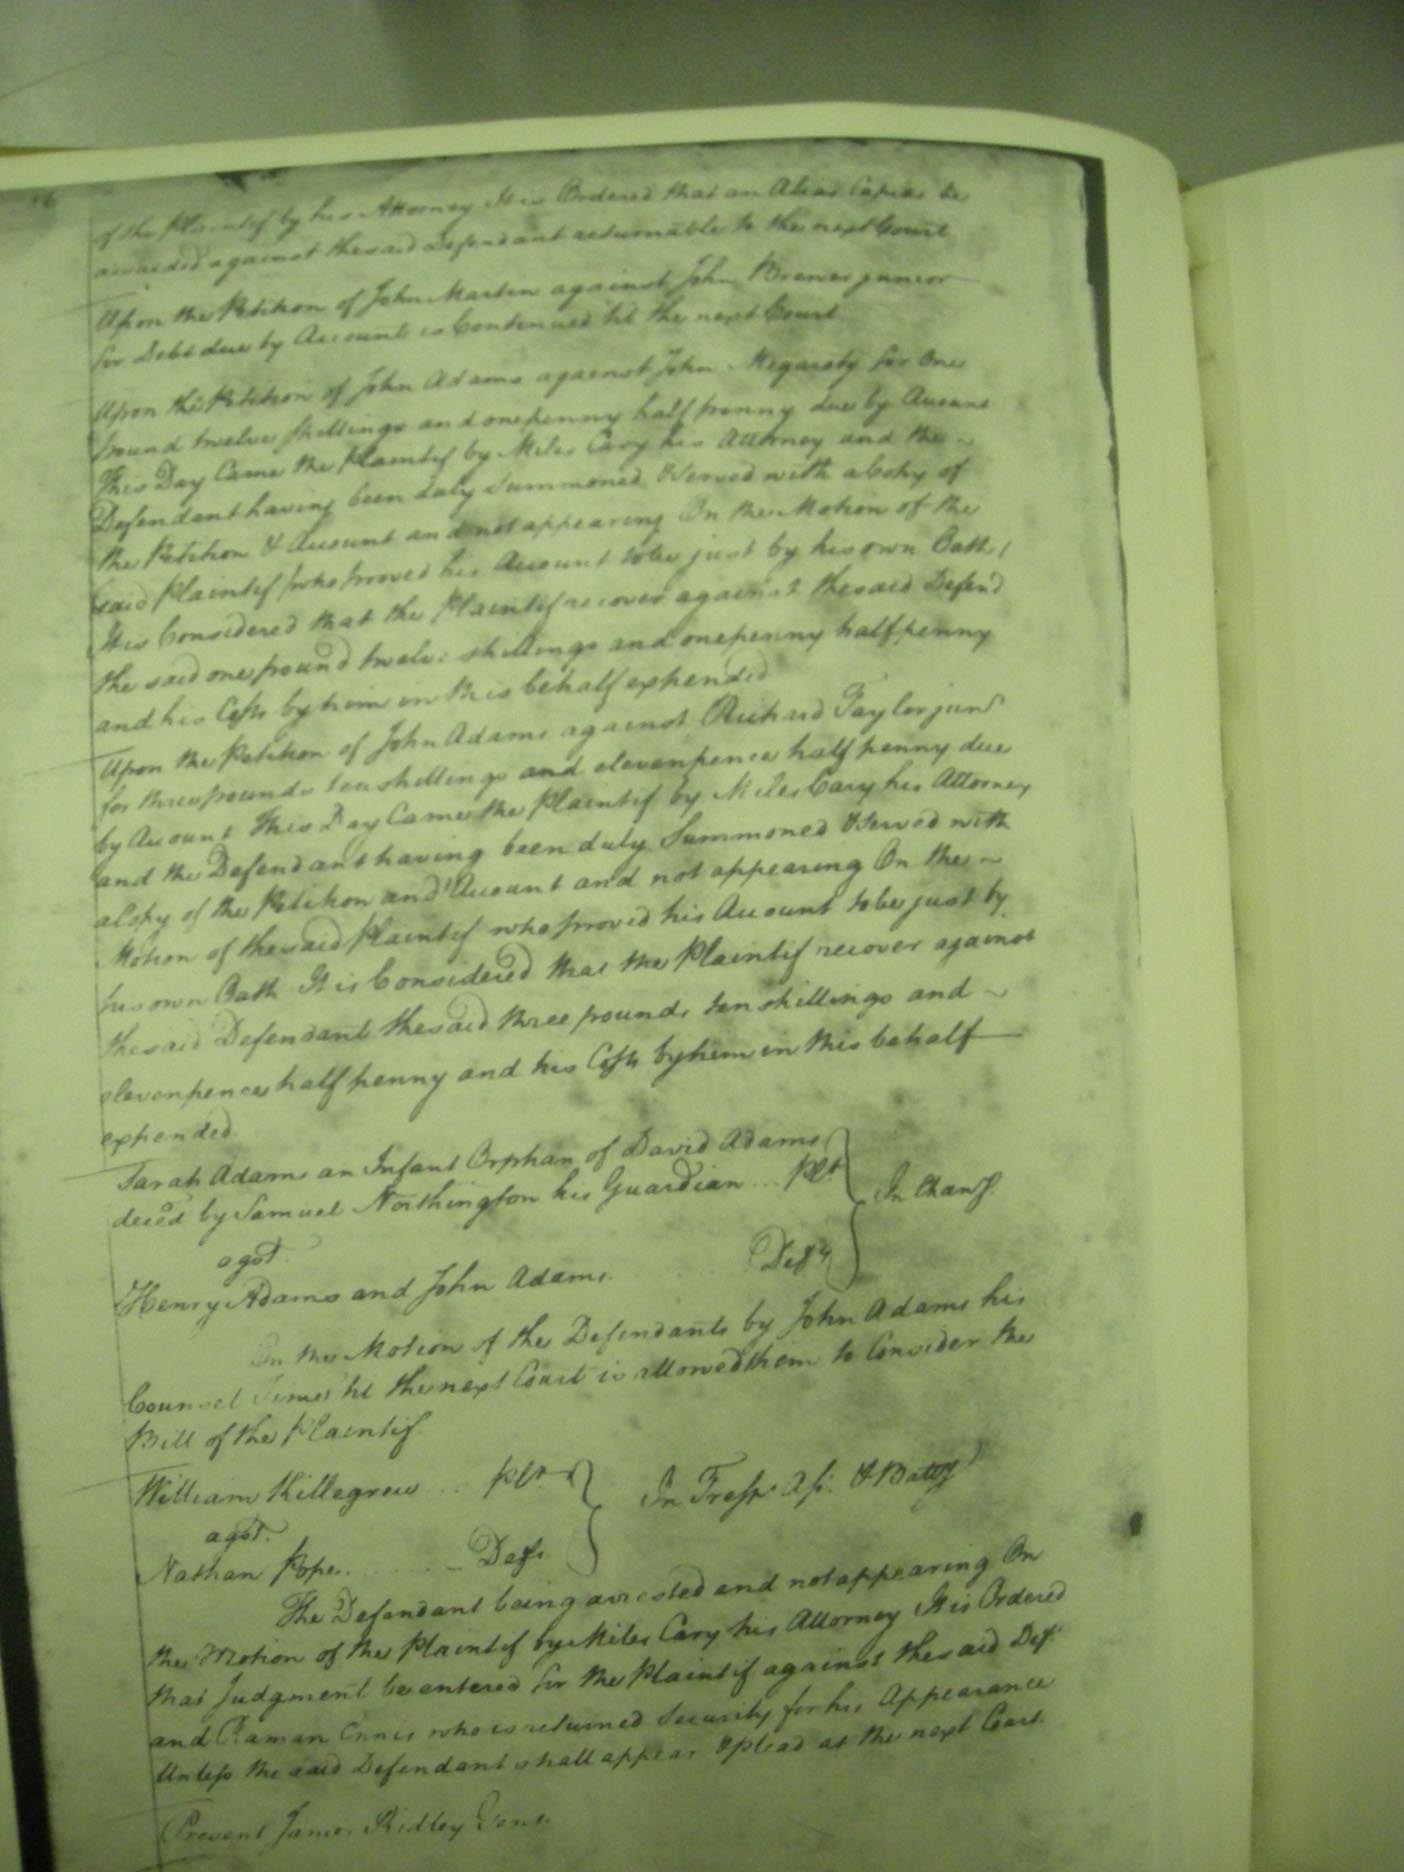 of the Plaintif by his Attorney It is Ordered that an Alias Capias be
awarded against the said Defendant returnable to the next Court
Upon the Petition of John Martin against John Brewer junior
for Debt due by Account is Continued til the next Court
Upon the Petition of John Adams against John Megarity for One
pound twelve shillings and onepenny half penny due by Account
This Day Came the Plaintif by Miles Cary his Attorney and the
Defendant having been duly Summoned & Served with a Copy of
the Petition & Account and not appearing On the Motion of the
said Plaintif who proved his Account to be just by his own Oath
It is Considered that the Plaintif recover against the said Defend
the said one pound twelve shillings and onepenny halfpenny
and his Costs by him in this behalf expended
Upon the Petition of John Adams against Richard Taylor junr
for three pounds ten shillings and elevenpence half penny due
by Account This Day Came the Plaintif by Miles Cary his Attorney
and the Defendant having been duly Summoned & Served with
a Copy of the Petition and Account and not appearing On the
Motion of the said Plaintif who proved his Account to be just by
his own Oath It is Considered that the Plaintif recover against
the said Defendant the said three pounds ten shillings and
elevenpence half penny and his Costs by him in this behalf
expended
Sarah Adams an Infant Orphan of David Adams
deced by Samuel Northington his Guardian ... Plt
In Chany.
agst.
Henry Adams and John Adams Defts
On the Motion of the Defendants by John Adams his
Counsel Time til the next Court is allowed them to Consider the
Bill of the Plaintif
William Killegrew .. Plt.
In Tresps. Ass. & Batty
agst.
Nathan Pope ...... Deft.
The Defendant being arrested and not appearing On
the Motion of the Plaintif by Miles Cary his Attorney It is Ordered
that Judgment be entered for the Plaintif against the said Def.
and Ennis who is returned Security for his Appearance
Unless the said Defendant shall appear & plead at the next Court
Present James Ridley Gent.